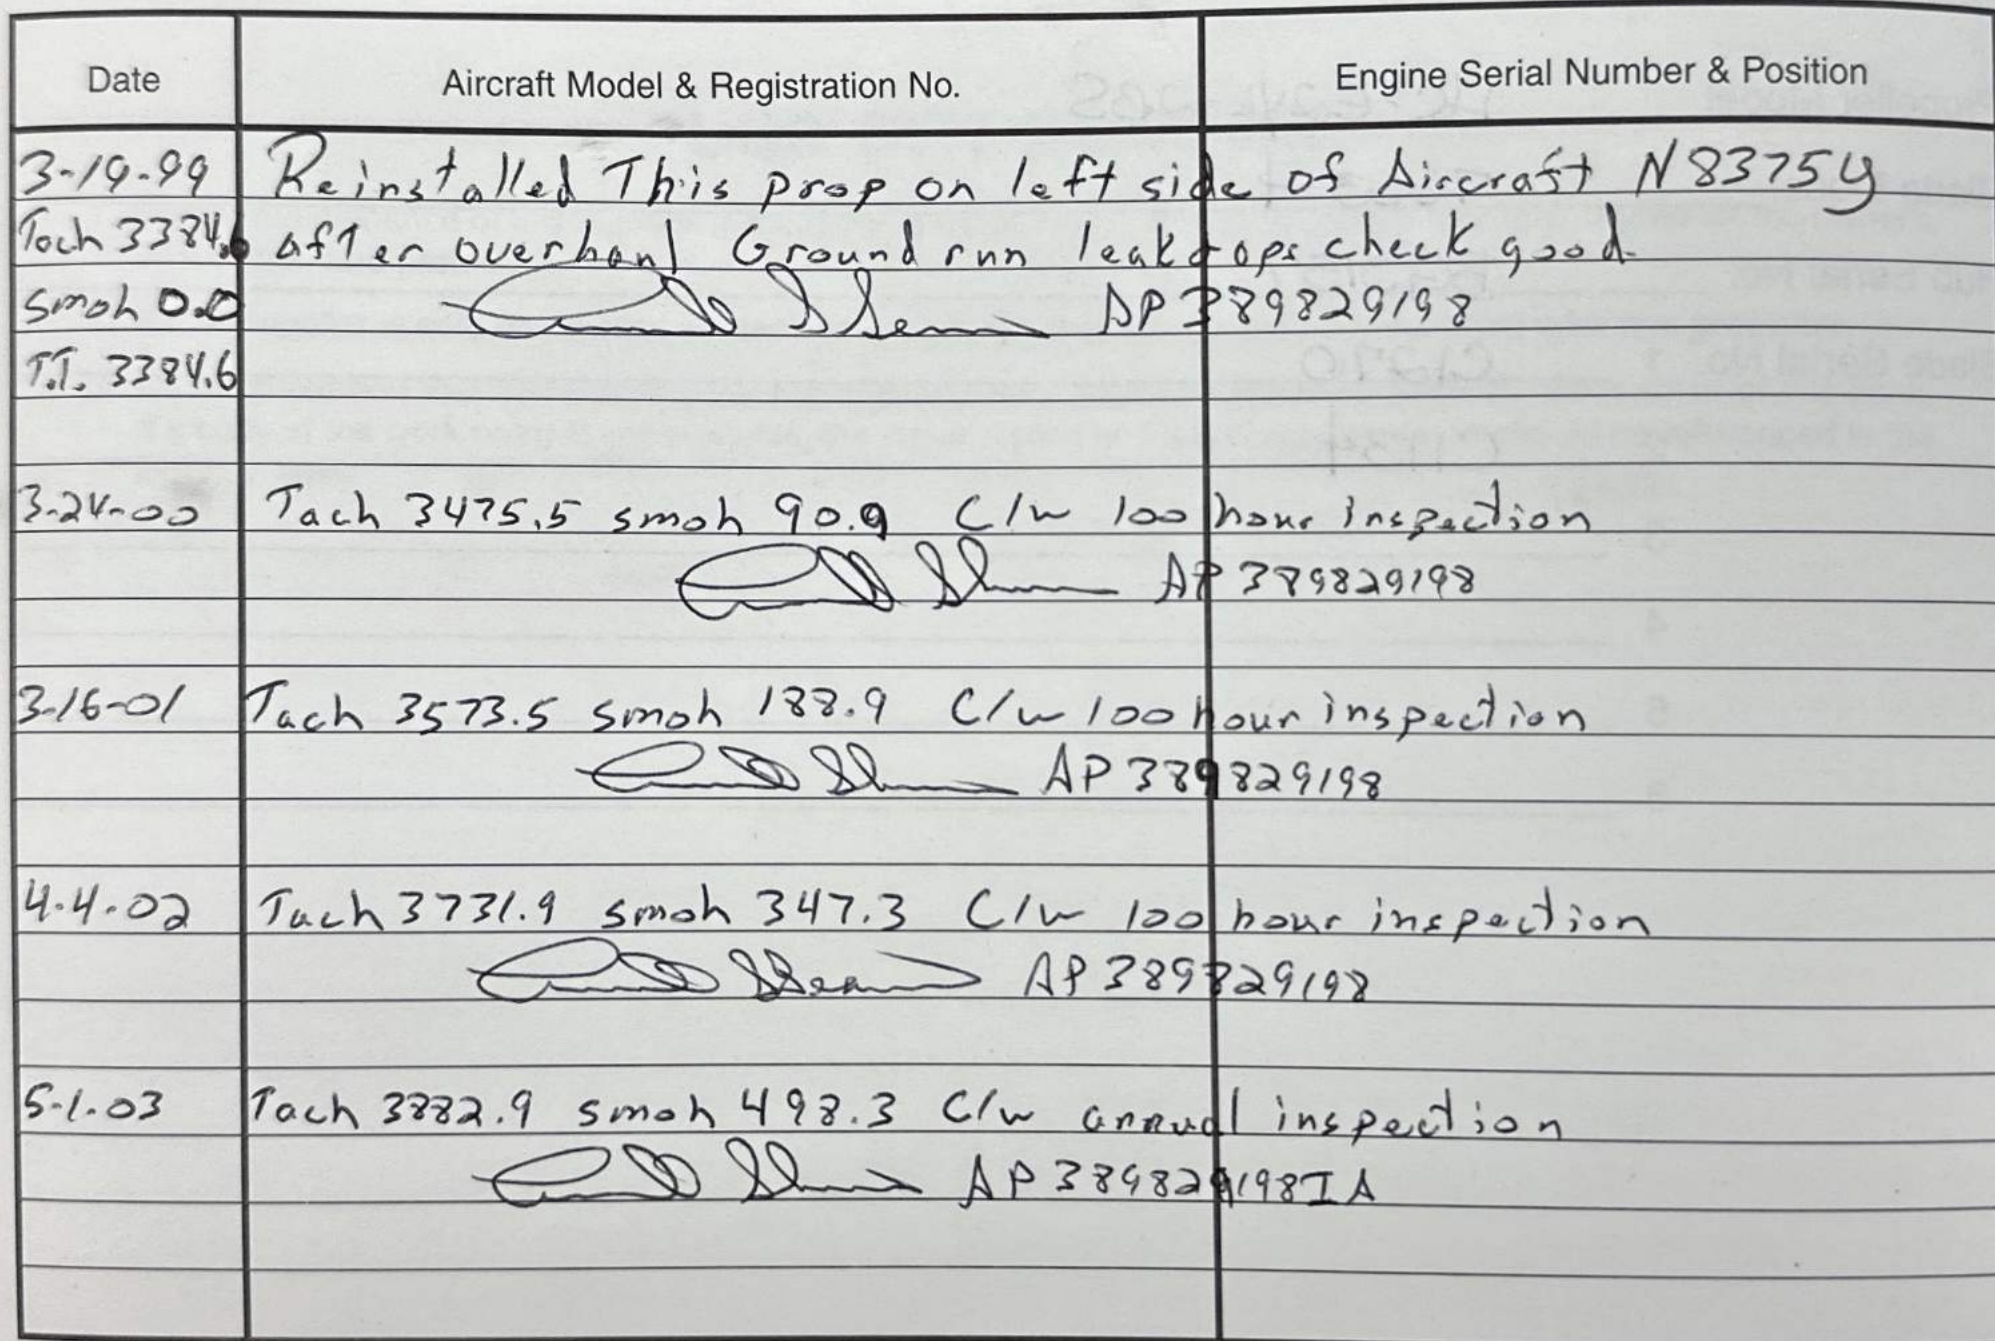 Date Aircraft Model & Registration No. Engine Serial Number & Position
3-19-99 Reinstalled This prop on left side of Aircraft N8375Y
Tach 3384.6 after overhaul Ground run leak & ops check good.
smoh 0.0 AP 389829198
T.T. 3384.6
3-24-00 Tach 3475.5 smoh 90.9 C/w 100 hour inspection
AP 389829198
3-16-01 Tach 3573.5 smoh 188.9 C/w 100 hour inspection
AP 389829198
4-4-02 Tach 3731.9 smoh 347.3 C/w 100 hour inspection
AP 389829198
5-1-03 Tach 3882.9 smoh 498.3 C/w annual inspection
AP 389829198IA